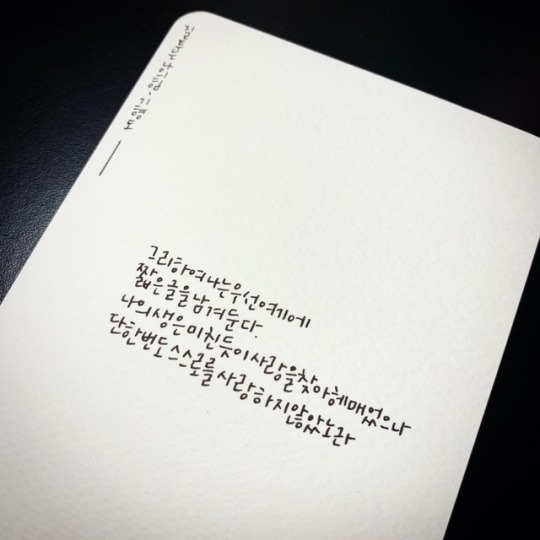 질투는 나의 힘, 기형도
그리하여 나는 우선 여기에
짧은 글을 남겨둔다.
나의 생은 미친듯이 사랑을 찾아 헤매었으나
단한번도 스스로를 사랑하지 않았노라